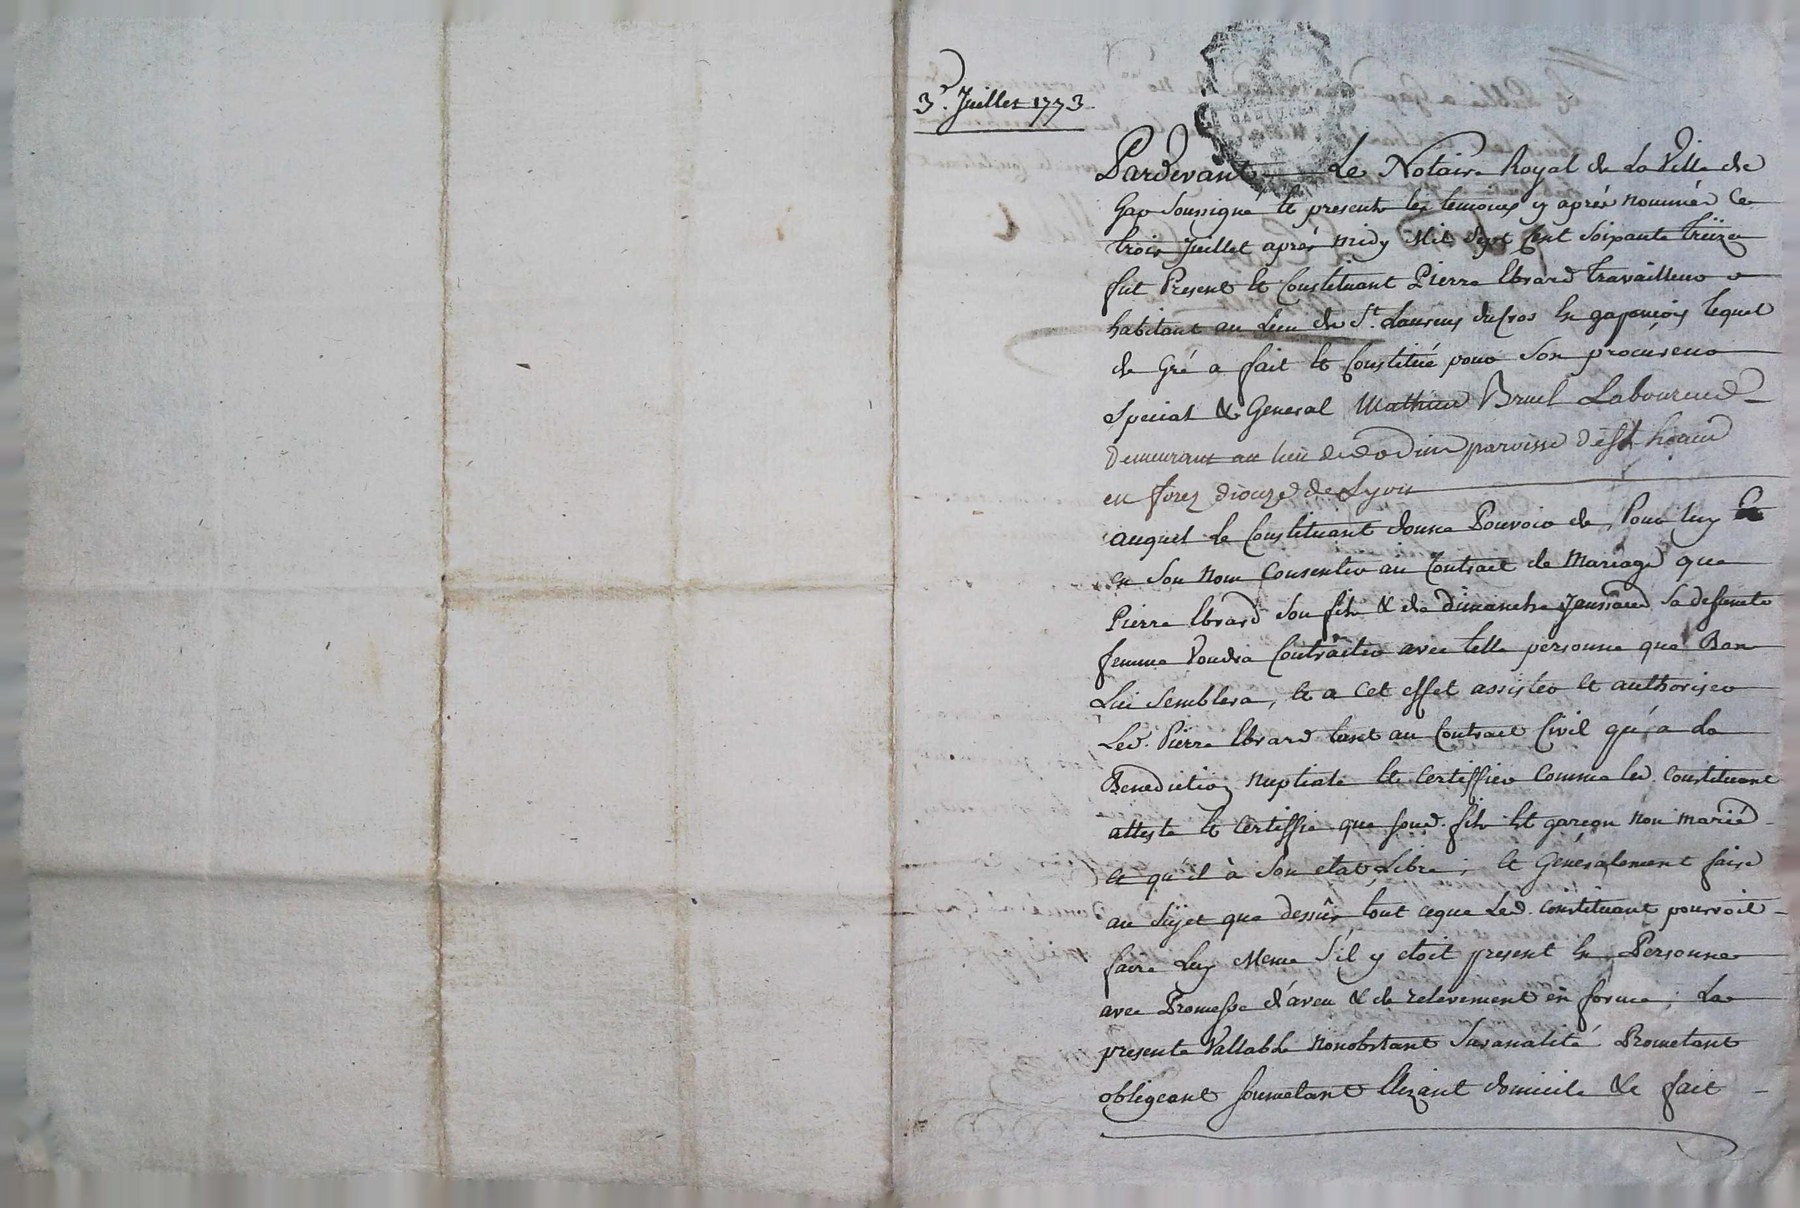 3e. Juillet 1773
Pardevant Le Notaire Royal de La Ville de
Gap Soussigné et presents les temoins y après nommés Ce
trois Juillet après midy Mil Sept Cent Soixante Treize
fut Present et Constituant Pierre Ebrard Travailleur
habitant au Lieu de St. Laurens du Cros En gapençois lequel
de Gré a fait et Constitué pour Son procureur
Special & General Mathieu Bruel Laboureur
Demeurant au lieu de paroisse
en forez diouze de Lyon
auquel le Constituant donne Pouvoir de, Pour luy Et
en Son Nom Consentir au Contract de Mariage que
Pierre Ebrard Son fils & de dimanche Sa defuncte
femme Voudra Contracter avec telle personne que Bon
Lui Semblera, et a Cet effet assister et authoriser
Led. Pierre Ebrard tant au Contract Civil qu'a la
Benediction Nuptiale et Certiffier Comme led. Constituant
atteste et Certiffie que Soud. fils Est garçon Non marié
et qu'il à Son etat Libre; et Generalement faire
au Sujet que dessus tout ceque Led. Constituant pourroit
faire Luy Meme S'il y etoit present En Personne
avec Promesse d'aveu & de relevement en forme; La
presente Vallable Nonobstant Suranalité Prometant
obligeant Soumetant Elizant domicile &c fait